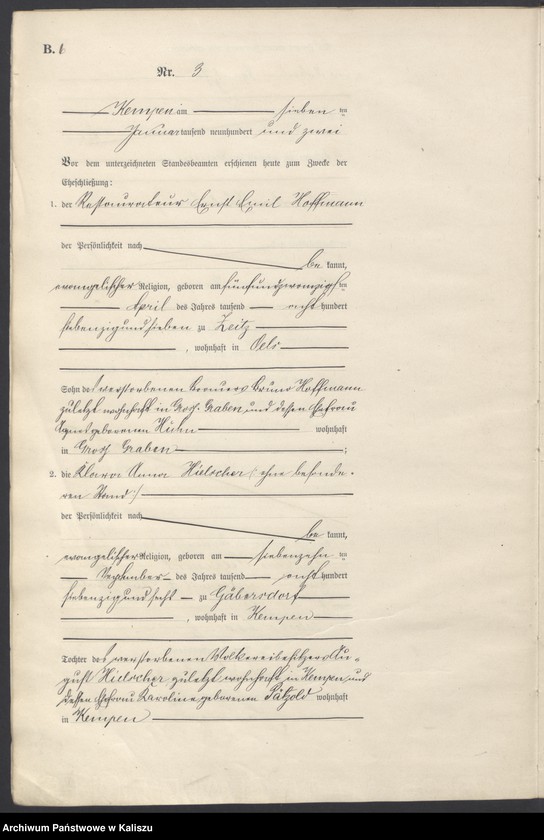 B.
Nr. 3
Kempen am sieben ten
Januar tausend neunhundert und zwei
Vor dem unterzeichneten Standesbeamten erschienen heute zum Zwecke der
Eheschließung:
1. der Restaurateur Ernst Emil Hoffmann
der Persönlichkeit nach
be kannt,
evangelischer Religion, geboren am fünfundzwanzigsten
April des Jahres tausend acht hundert
siebenzigundsieben zu Zeitz
, wohnhaft in Oels
Sohn des verstorbenen Brauers Bruno Hoffmann
zuletzt wohnhaft in Groß Graben und dessen Ehefrau
geborenen Hühn wohnhaft
in Groß Graben ;
2. die Klara Anna Hielscher (: ohne besonde-
ren Stand :)
der Persönlichkeit nach
be kannt,
evangelischer Religion, geboren am siebenzehn ten
September des Jahres tausend acht hundert
siebenzigundsechs zu Gäbersdorf
, wohnhaft in Kempen
Tochter des verstorbenen Molkereibesitzers Au-
gust Hielscher zuletzt wohnhaft in Kempen und
dessen Ehefrau Karoline geborenen Pätzold wohnhaft
in Kempen
Archiwum Państwowe w Kaliszu